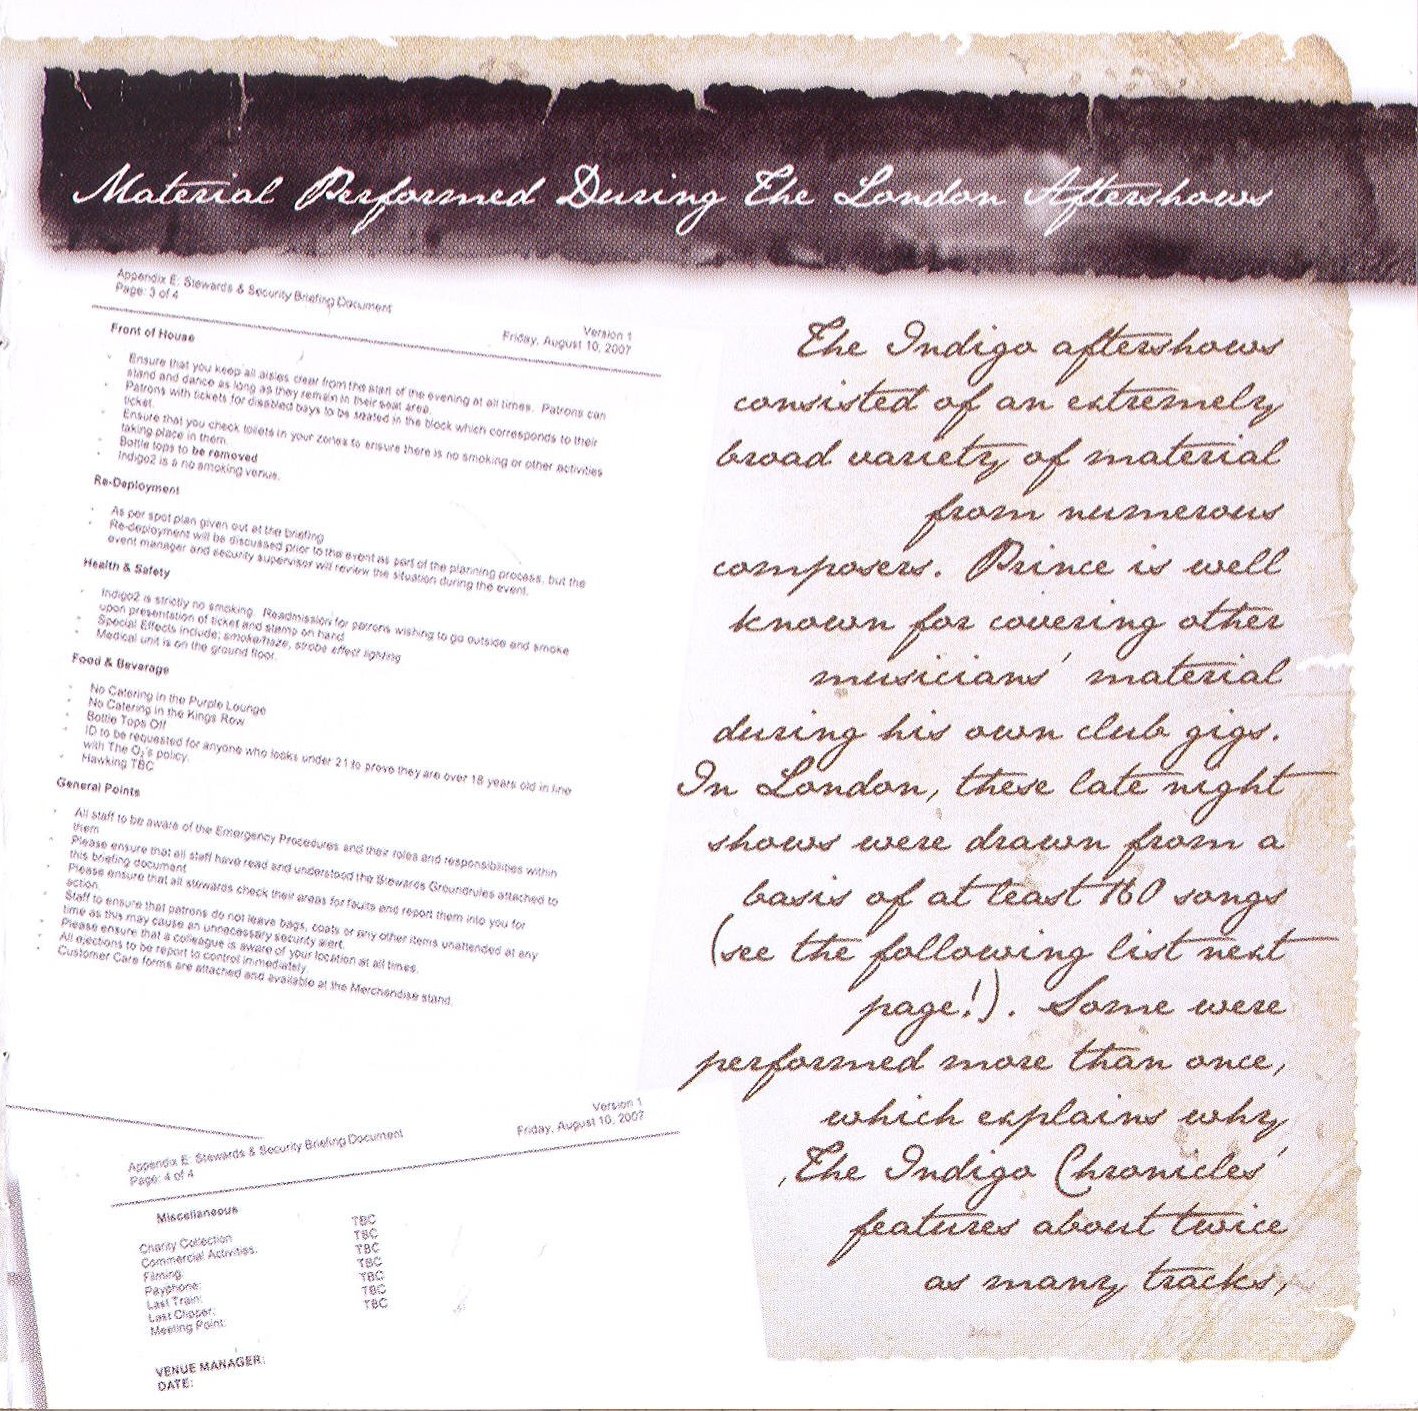 Material Performed During The London Aftershows
Appendix E. Stewards & Security Briefing Document
Page: 3 of 4
Version 1
Friday, August 10, 2007
Front of House
Ensure that you keep all aisles clear from the start of the evening at all times. Patrons can
stand and dance as long as they remain in their seat area.
Patrons with tickets for disabled bays to be seated in the block which corresponds to their
ticket.
Ensure that you check toilets in your zones to ensure there is no smoking or other activities
taking place in them.
Bottle tops to be removed
Indigo2 is a no smoking venue.
Re-Deployment
As per spot plan given out at the briefing
Re-deployment will be discussed prior to the event as part of the planning process, but the
event manager and security supervisor will review the situation during the event.
Health & Safety
Indigo2 is strictly no smoking. Readmission for patrons wishing to go outside and smoke
upon presentation of ticket and stamp on hand
Special Effects include; smoke/haze, strobe effect lighting
Medical unit is on the ground floor.
Food & Beverage
No Catering in the Purple Lounge
No Catering in the Kings Row
Bottle Tops Off
ID to be requested for anyone who looks under 21 to prove they are over 18 years old in line
with The O2's policy.
Hawking TBC
General Points
All staff to be aware of the Emergency Procedures and their roles and responsibilities within
them
Please ensure that all staff have read and understood the Stewards Groundrules attached to
this briefing document
Please ensure that all stewards check their areas for faults and report them into you for
action.
Staff to ensure that patrons do not leave bags, coats or any other items unattended at any
time as this may cause an unnecessary security alert.
Please ensure that a colleague is aware of your location at all times.
All ejections to be report to control immediately
Customer Care forms are attached and available at the Merchandise stand.
Version 1
Friday, August 10, 2007
Appendix E. Stewards & Security Briefing Document
Page: 4 of 4
Miscellaneous
Charity Collection TBC
Commercial Activities: TBC
Filming: TBC
Payphone: TBC
Last Train: TBC
Last Clipper: TBC
Meeting Point: TBC
VENUE MANAGER:
DATE:
The Indigo aftershows
consisted of an extremely
broad variety of material
from numerous
composers. Prince is well
known for covering other
musicians' material
during his own club gigs.
In London, these late night
shows were drawn from a
basis of at least 160 songs
(see the following list next
page!). Some were
performed more than once,
which explains why
,The Indigo Chronicles'
features about twice
as many tracks,